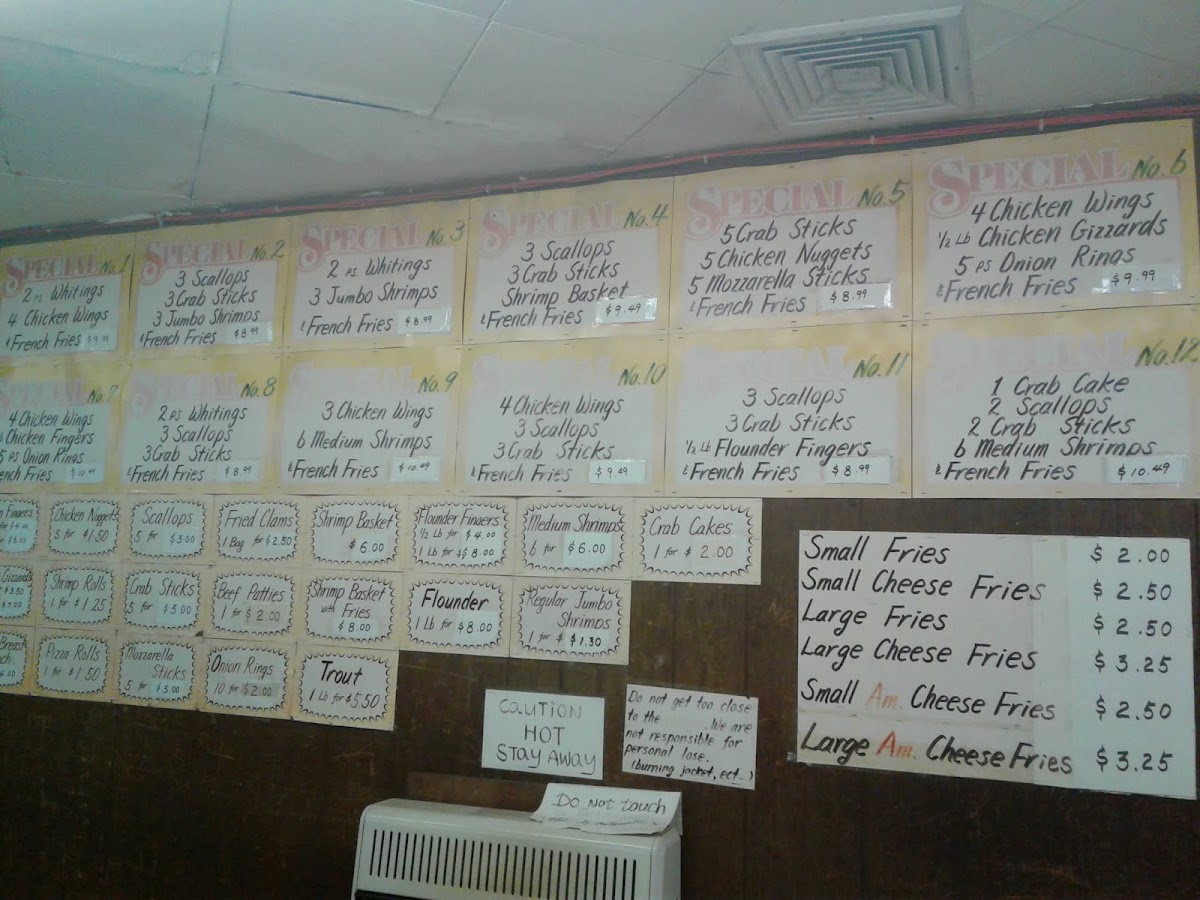 SPECIAL No. 1
2 PS. Whitings
4 Chicken Wings
& French Fries $9.99
SPECIAL No. 2
3 Scallops
3 Crab Sticks
3 Jumbo Shrimps
& French Fries $8.99
SPECIAL No. 3
2 PS. Whitings
3 Jumbo Shrimps
& French Fries $8.99
SPECIAL No. 4
3 Scallops
3 Crab Sticks
Shrimp Basket
& French Fries $9.49
SPECIAL No. 5
5 Crab Sticks
5 Chicken Nuggets
5 Mozzarella Sticks
& French Fries $8.99
SPECIAL No. 6
4 Chicken Wings
1/2 Lb Chicken Gizzards
5 PS Onion Rings
& French Fries $9.99
SPECIAL No. 7
4 Chicken Wings
Chicken Fingers
5 PS Onion Rings
French Fries $10.49
SPECIAL No. 8
2 PS Whitings
3 Scallops
3 Crab Sticks
& French Fries $8.99
SPECIAL No. 9
3 Chicken Wings
6 Medium Shrimps
& French Fries $10.49
SPECIAL No. 10
4 Chicken Wings
3 Scallops
3 Crab Sticks
& French Fries $9.49
SPECIAL No. 11
3 Scallops
3 Crab Sticks
1/2 Lb Flounder Fingers
& French Fries $8.99
SPECIAL No. 12
1 Crab Cake
2 Scallops
2 Crab Sticks
6 Medium Shrimps
& French Fries $10.49
Fingers
Chicken Nuggets
5 for $1.50
Scallops
5 for $3.00
Fried Clams
1 Bag for $2.50
Shrimp Basket
$6.00
Flounder Fingers
1/2 Lb for $4.00
1 Lb for $8.00
Medium Shrimps
6 for $6.00
Crab Cakes
1 for $2.00
Gizzards
Shrimp Rolls
1 for $1.25
Crab Sticks
5 for $3.00
Beef Patties
1 for $2.00
Shrimp Basket
with Fries
$8.00
Flounder
1 Lb for $8.00
Regular Jumbo
Shrimps
1 for $ $1.30
Pizza Rolls
1 for $1.50
Mozzarella
Sticks
5 for $3.00
Onion Rings
10 for $2.00
Trout
1 Lb for $5.50
Small Fries $2.00
Small Cheese Fries $2.50
Large Fries $2.50
Large Cheese Fries $3.25
Small Am. Cheese Fries $2.50
Large Am. Cheese Fries $3.25
CAUTION
HOT
STAY AWAY
Do not get too close
to the . We are
not responsible for
personal lose.
(burning jacket, ect...)
DO NOT touch